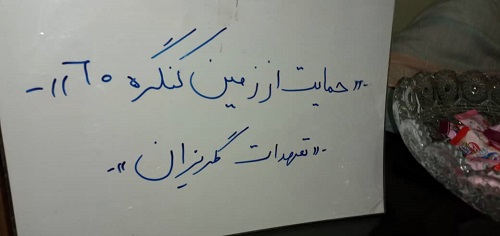 -«حمایت از زمین کنگره ۶۰»-
-«تعهدات گمریزان»-